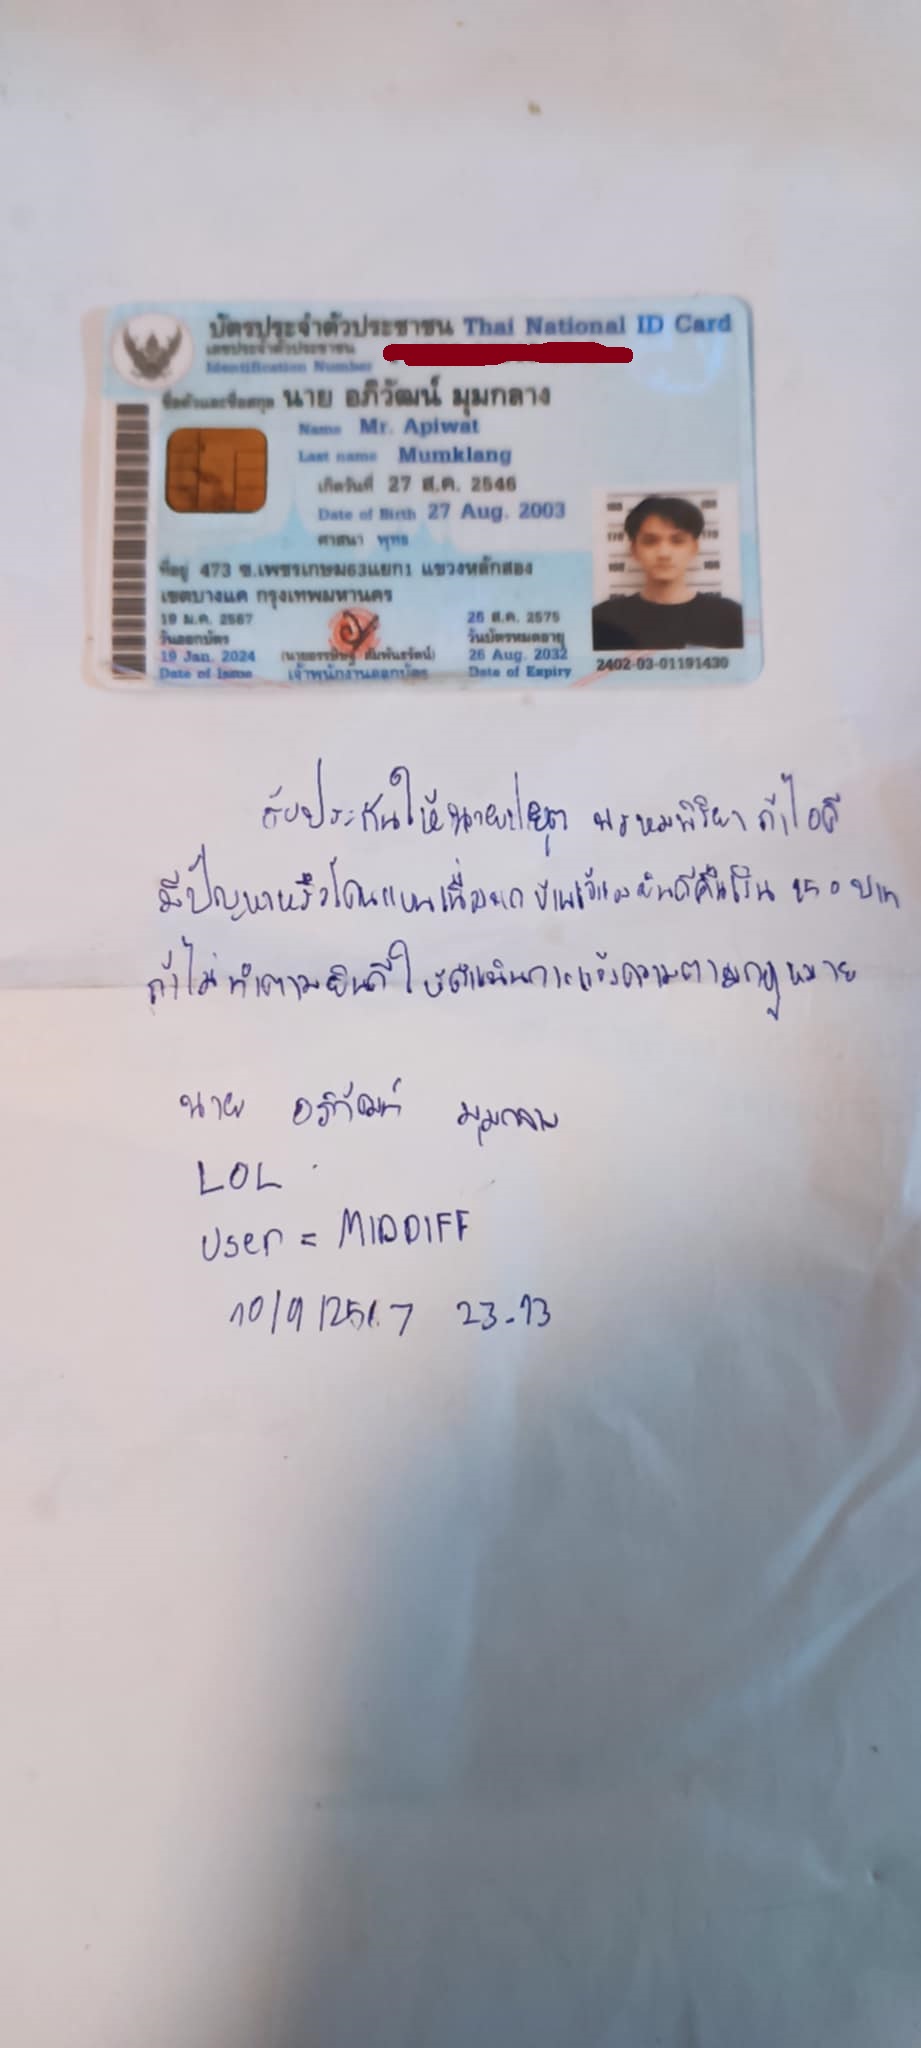 บัตรประจำตัวประชาชน Thai National ID Card
เลขประจำตัวประชาชน
Identification Number
ชื่อตัวและชื่อสกุล นาย อภิวัฒน์ มุมกลาง
Name Mr. Apiwat
Last name Mumklang
เกิดวันที่ 27 ส.ค. 2546
Date of Birth 27 Aug. 2003
ศาสนา พุทธ
ที่อยู่ 473 ซ.เพชรเกษม63แยก1 แขวงหลักสอง
เขตบางแค กรุงเทพมหานคร
19 ม.ค. 2567
วันออกบัตร
19 Jan. 2024
Date of Issue
เจ้าพนักงานออกบัตร
26 ส.ค. 2575
วันบัตรหมดอายุ
26 Aug. 2032
Date of Expiry
2402-03-01191430
รับประกันให้นาย พรหมพิริยา ถ้าไอดี
มีปัญหาหรือโดนแบน ยินดีคืนเงิน 150 บาท
ถ้าไม่ทำตามยินดีให้ดำเนินการแจ้งความตามกฎหมาย
นาย อภิวัฒน์ มุมกลาง
LOL
User = MIDDIFF
10/9/2567 23.13